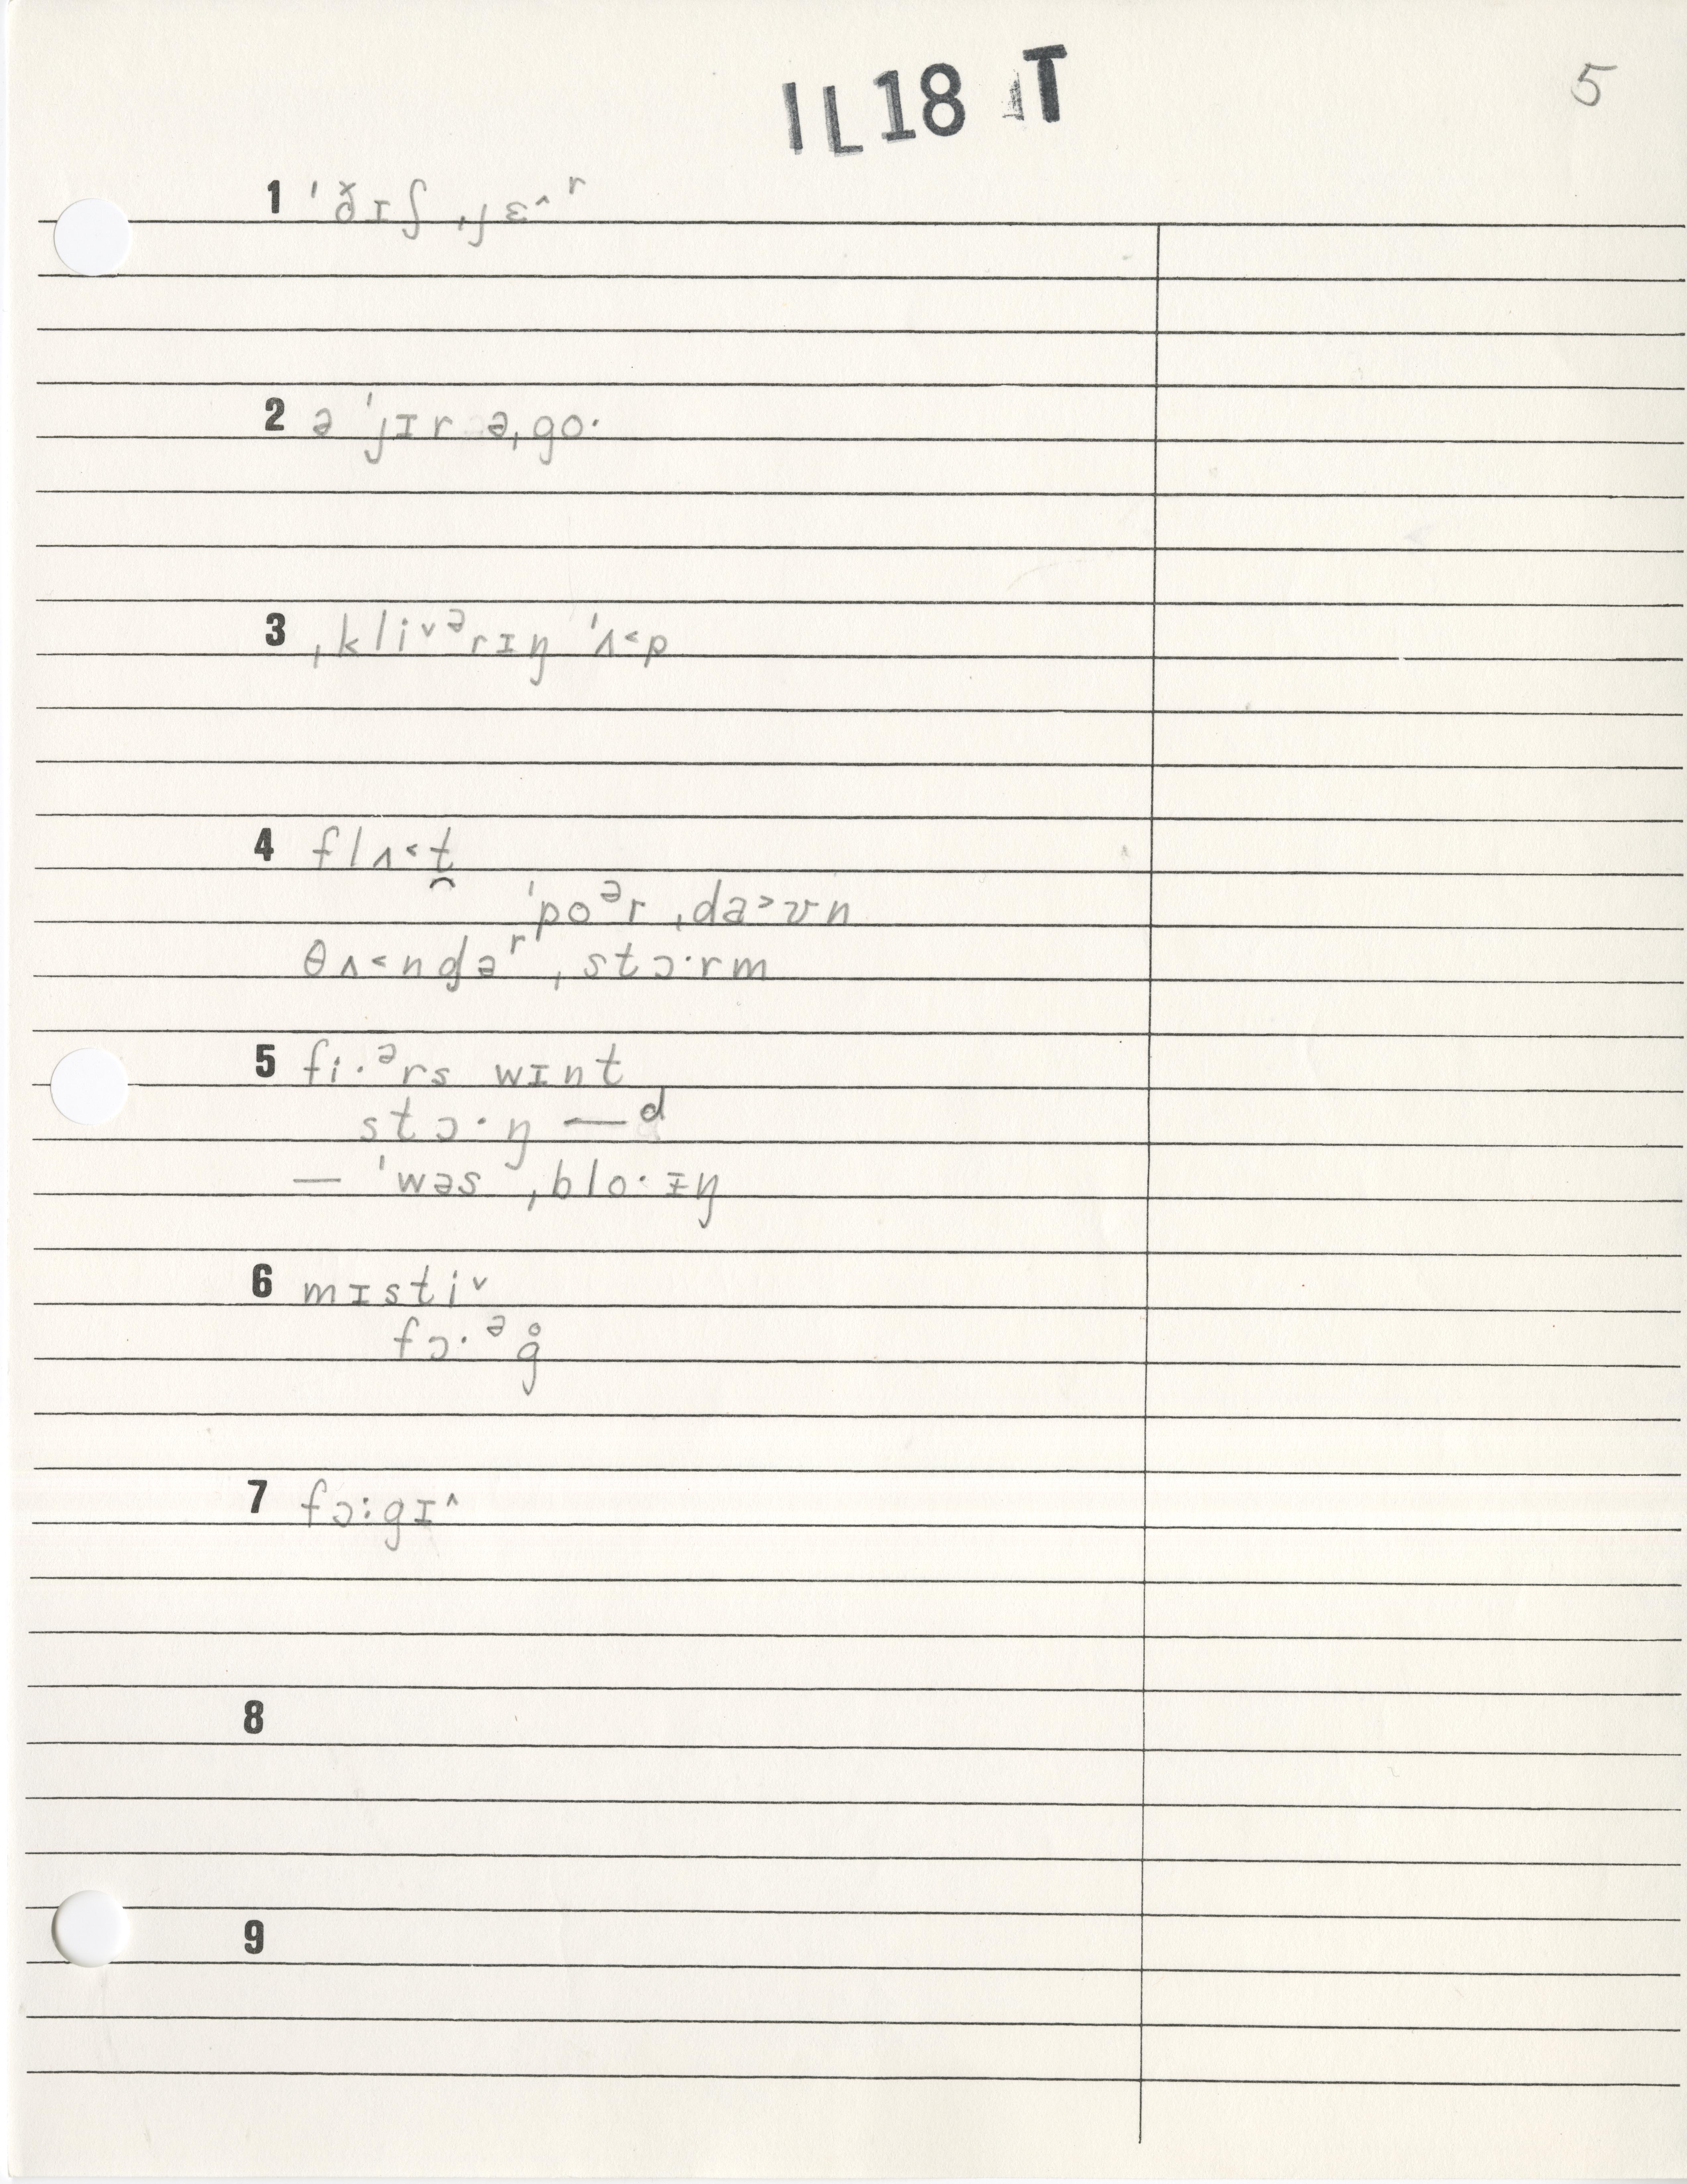 IL18 T
5
1 ˈðɪʃ ˌjɛ˄ʳ
2 ə ˈjɪr əˌgo·
3 ˌkli˅ᵊrɪŋ ˈʌ˂p
4 flʌ˂t̯
ˈpoᵊr ˌda˃ʊn
θʌ˂ndəʳ ˌstɔ·rm
5 fi·ᵊrs wɪnt
stɔ·ŋ — d
— ˈwəs ˌblo·ɪŋ
6 mɪsti˅
fɔ·ᵊg̊
7 fɔ:gɪ˄
8
9